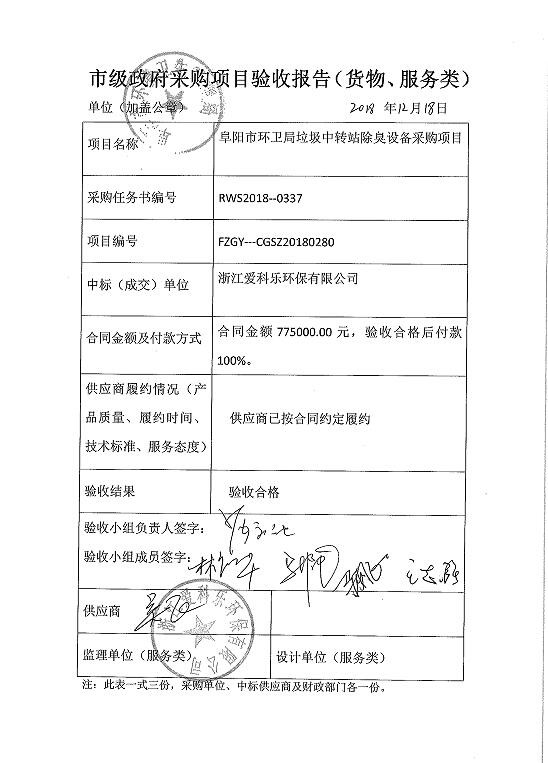 市级政府采购项目验收报告（货物、服务类）
单位（加盖公章） 2018 年12月18日
项目名称 阜阳市环卫局垃圾中转站除臭设备采购项目
采购任务书编号 RWS2018--0337
项目编号 FZGY---CGSZ20180280
中标（成交）单位 浙江爱科乐环保有限公司
合同金额及付款方式 合同金额 775000.00 元，验收合格后付款
100%。
供应商履约情况（产
品质量、履约时间、
技术标准、服务态度）
供应商已按合同约定履约
验收结果 验收合格
验收小组负责人签字：
验收小组成员签字：
供应商
爱科乐环保有限公司
监理单位（服务类） 设计单位（服务类）
注：此表一式三份，采购单位、中标供应商及财政部门各一份。